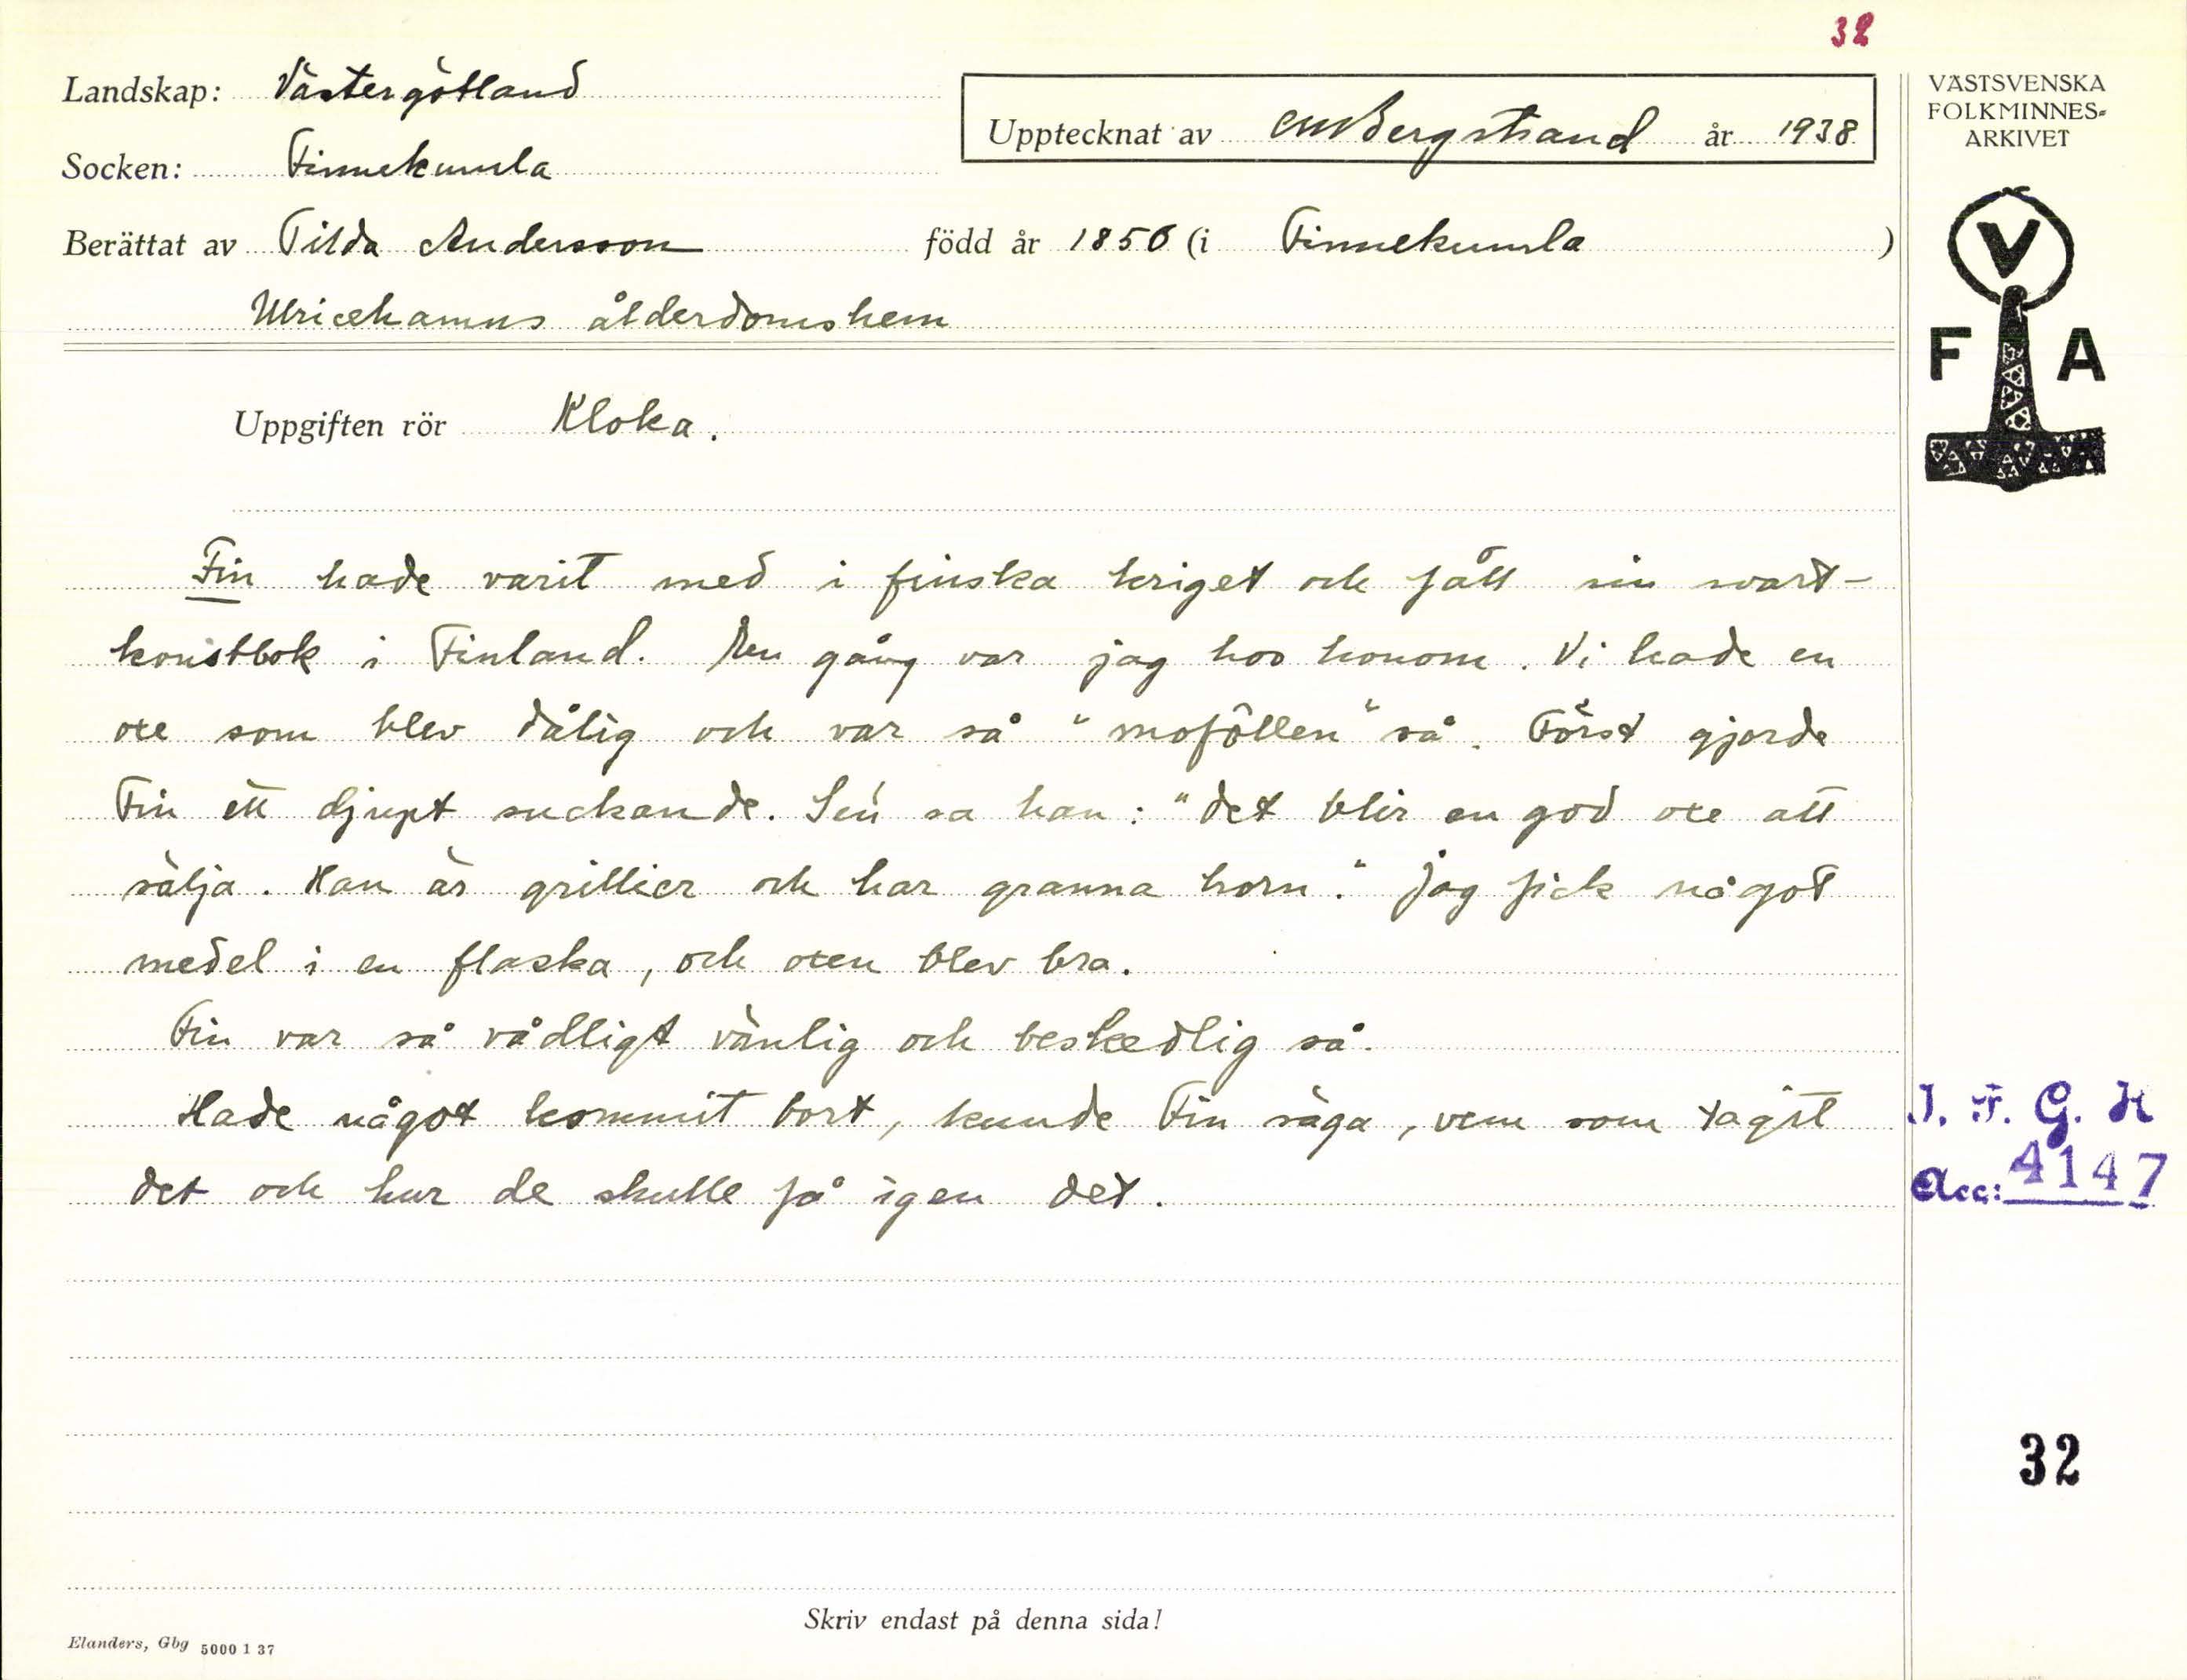 32
Landskap: Västergötland
Upptecknat av CMBergstrand år 1938
Socken: Finnekumla
Berättat av Tilda Andersson född år 1850 (i Finnekumla)
Ulricehamns ålderdomshem
Uppgiften rör Kloka.
Fin hade varit med i finska kriget och fått sin svart-
konstbok i Finland. En gång var jag hos honom. Vi hade en
oxe som blev dålig och var så "mofôllen" så. Först gjorde
Fin ett djupt suckande. Sen sa han: "det blir en god oxe att
sälja. Han är grillier och har granna horn." Jag fick något
medel i en flaska, och oxen blev bra.
Fin var så vådligt vänlig och beskedlig så.
Hade något kommit bort, kunde Fin säga, vem som tagit
det och hur de skulle få igen det.
Skriv endast på denna sida!
Elanders, Gbg 5000 1 37
VÄSTSVENSKA
FOLKMINNES-
ARKIVET
V
F A
I. F. G. H
Acc: 4147
32